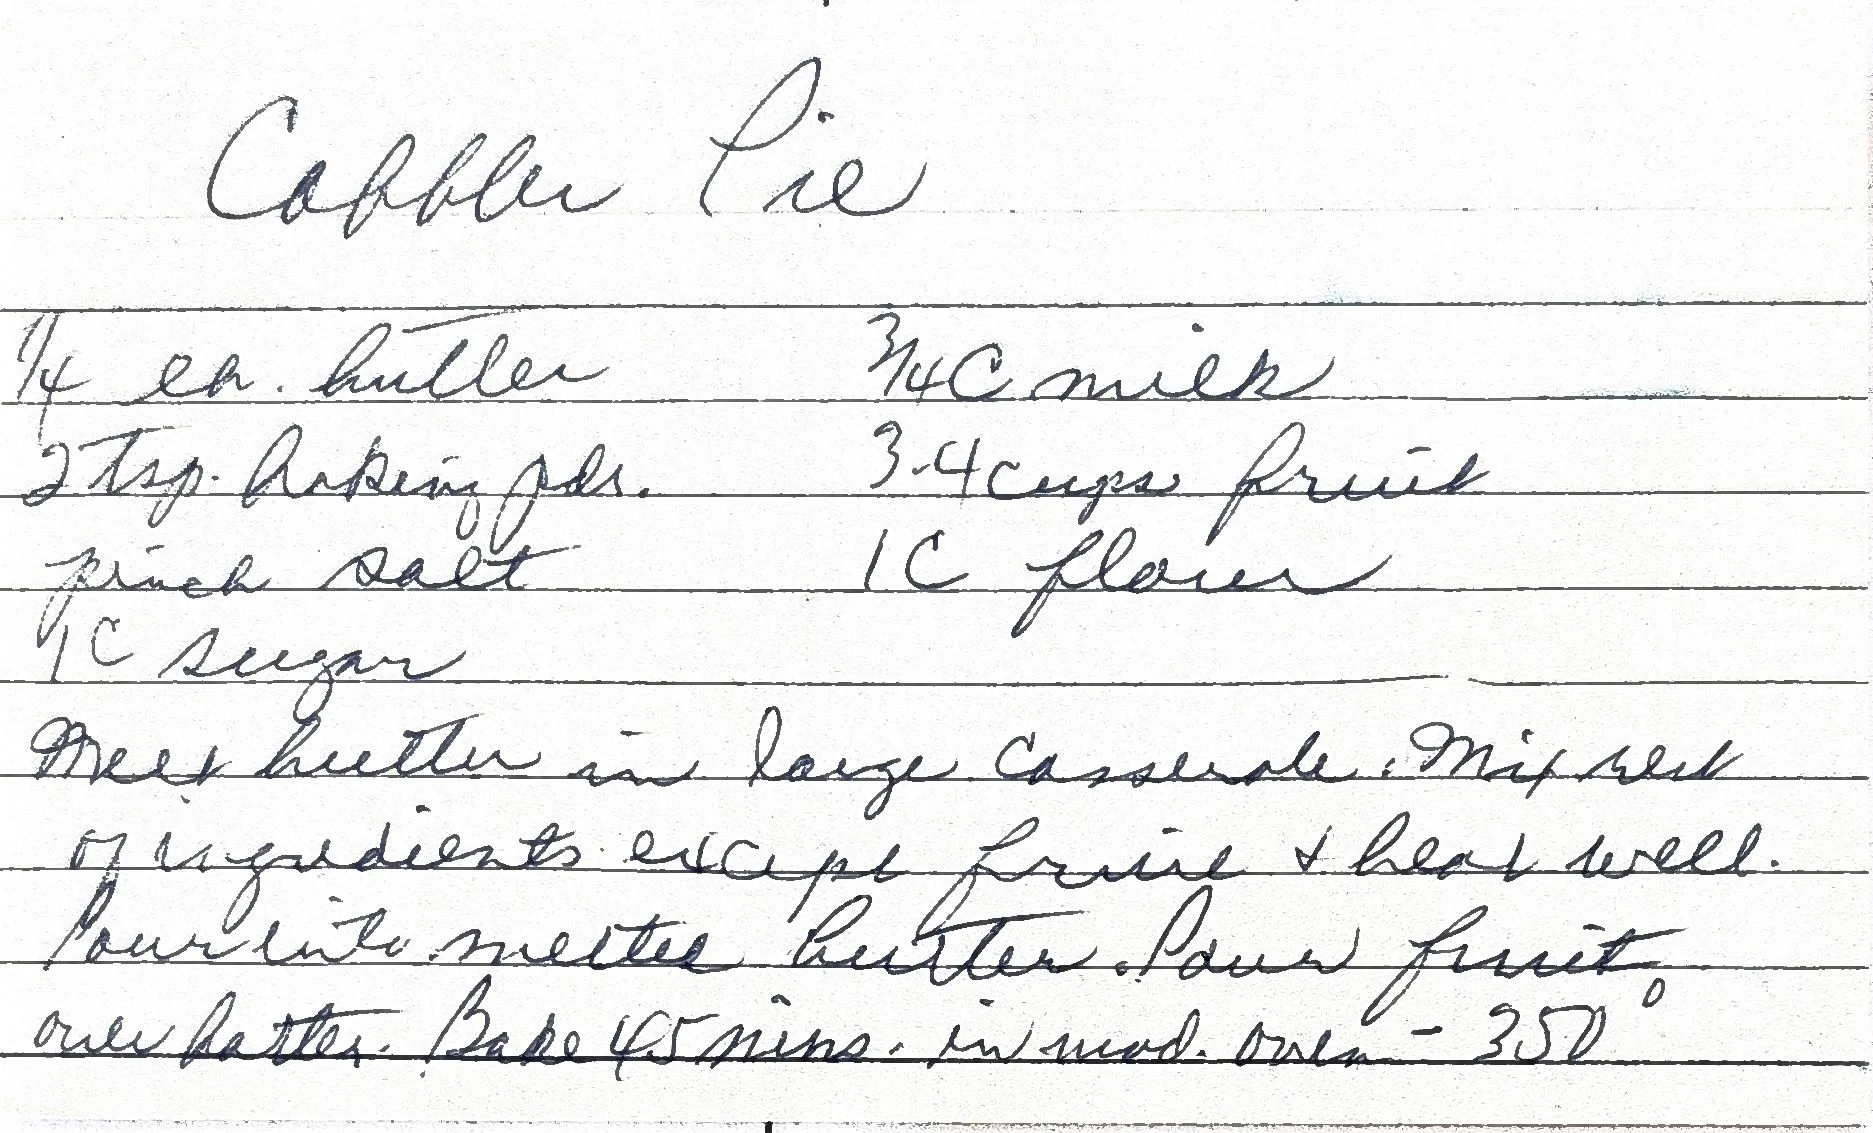 Cobbler Pie
1/4 lb. butter 3/4 C milk
2 tsp. baking pdr. 3-4 cups fruit
pinch salt 1 C flour
1 C sugar
Melt butter in large casserole. Mix rest
of ingredients except fruit & beat well.
Pour into melted butter. Pour fruit
over batter. Bake 45 mins. in mod. oven - 350°